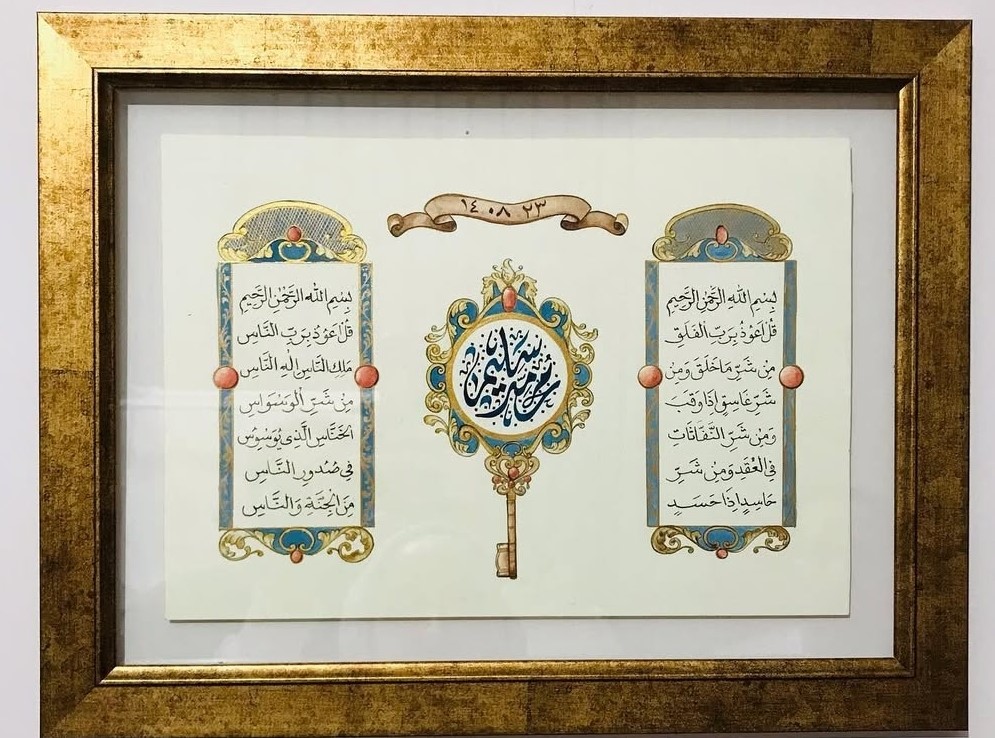 ١٤ ٠٨ ٢٣
بِسْمِ اللهِ الرَّحْمٰنِ الرَّحِيمِ
قُلْ اَعُوذُ بِرَبِّ الْفَلَقِ
مِنْ شَرِّ مَا خَلَقَ وَمِنْ
شَرِّ غَاسِقٍ اِذَا وَقَبَ
وَمِنْ شَرِّ النَّفَّاثَاتِ
فِى الْعُقَدِ وَمِنْ شَرِّ
حَاسِدٍ اِذَا حَسَدَ
سليم
عمر
بِسْمِ اللهِ الرَّحْمٰنِ الرَّحِيمِ
قُلْ اَعُوذُ بِرَبِّ النَّاسِ
مَلِكِ النَّاسِ اِلٰهِ النَّاسِ
مِنْ شَرِّ الْوَسْوَاسِ
الْخَنَّاسِ الَّذِى يُوَسْوِسُ
فِى صُدُورِ النَّاسِ
مِنَ الْجِنَّةِ وَالنَّاسِ